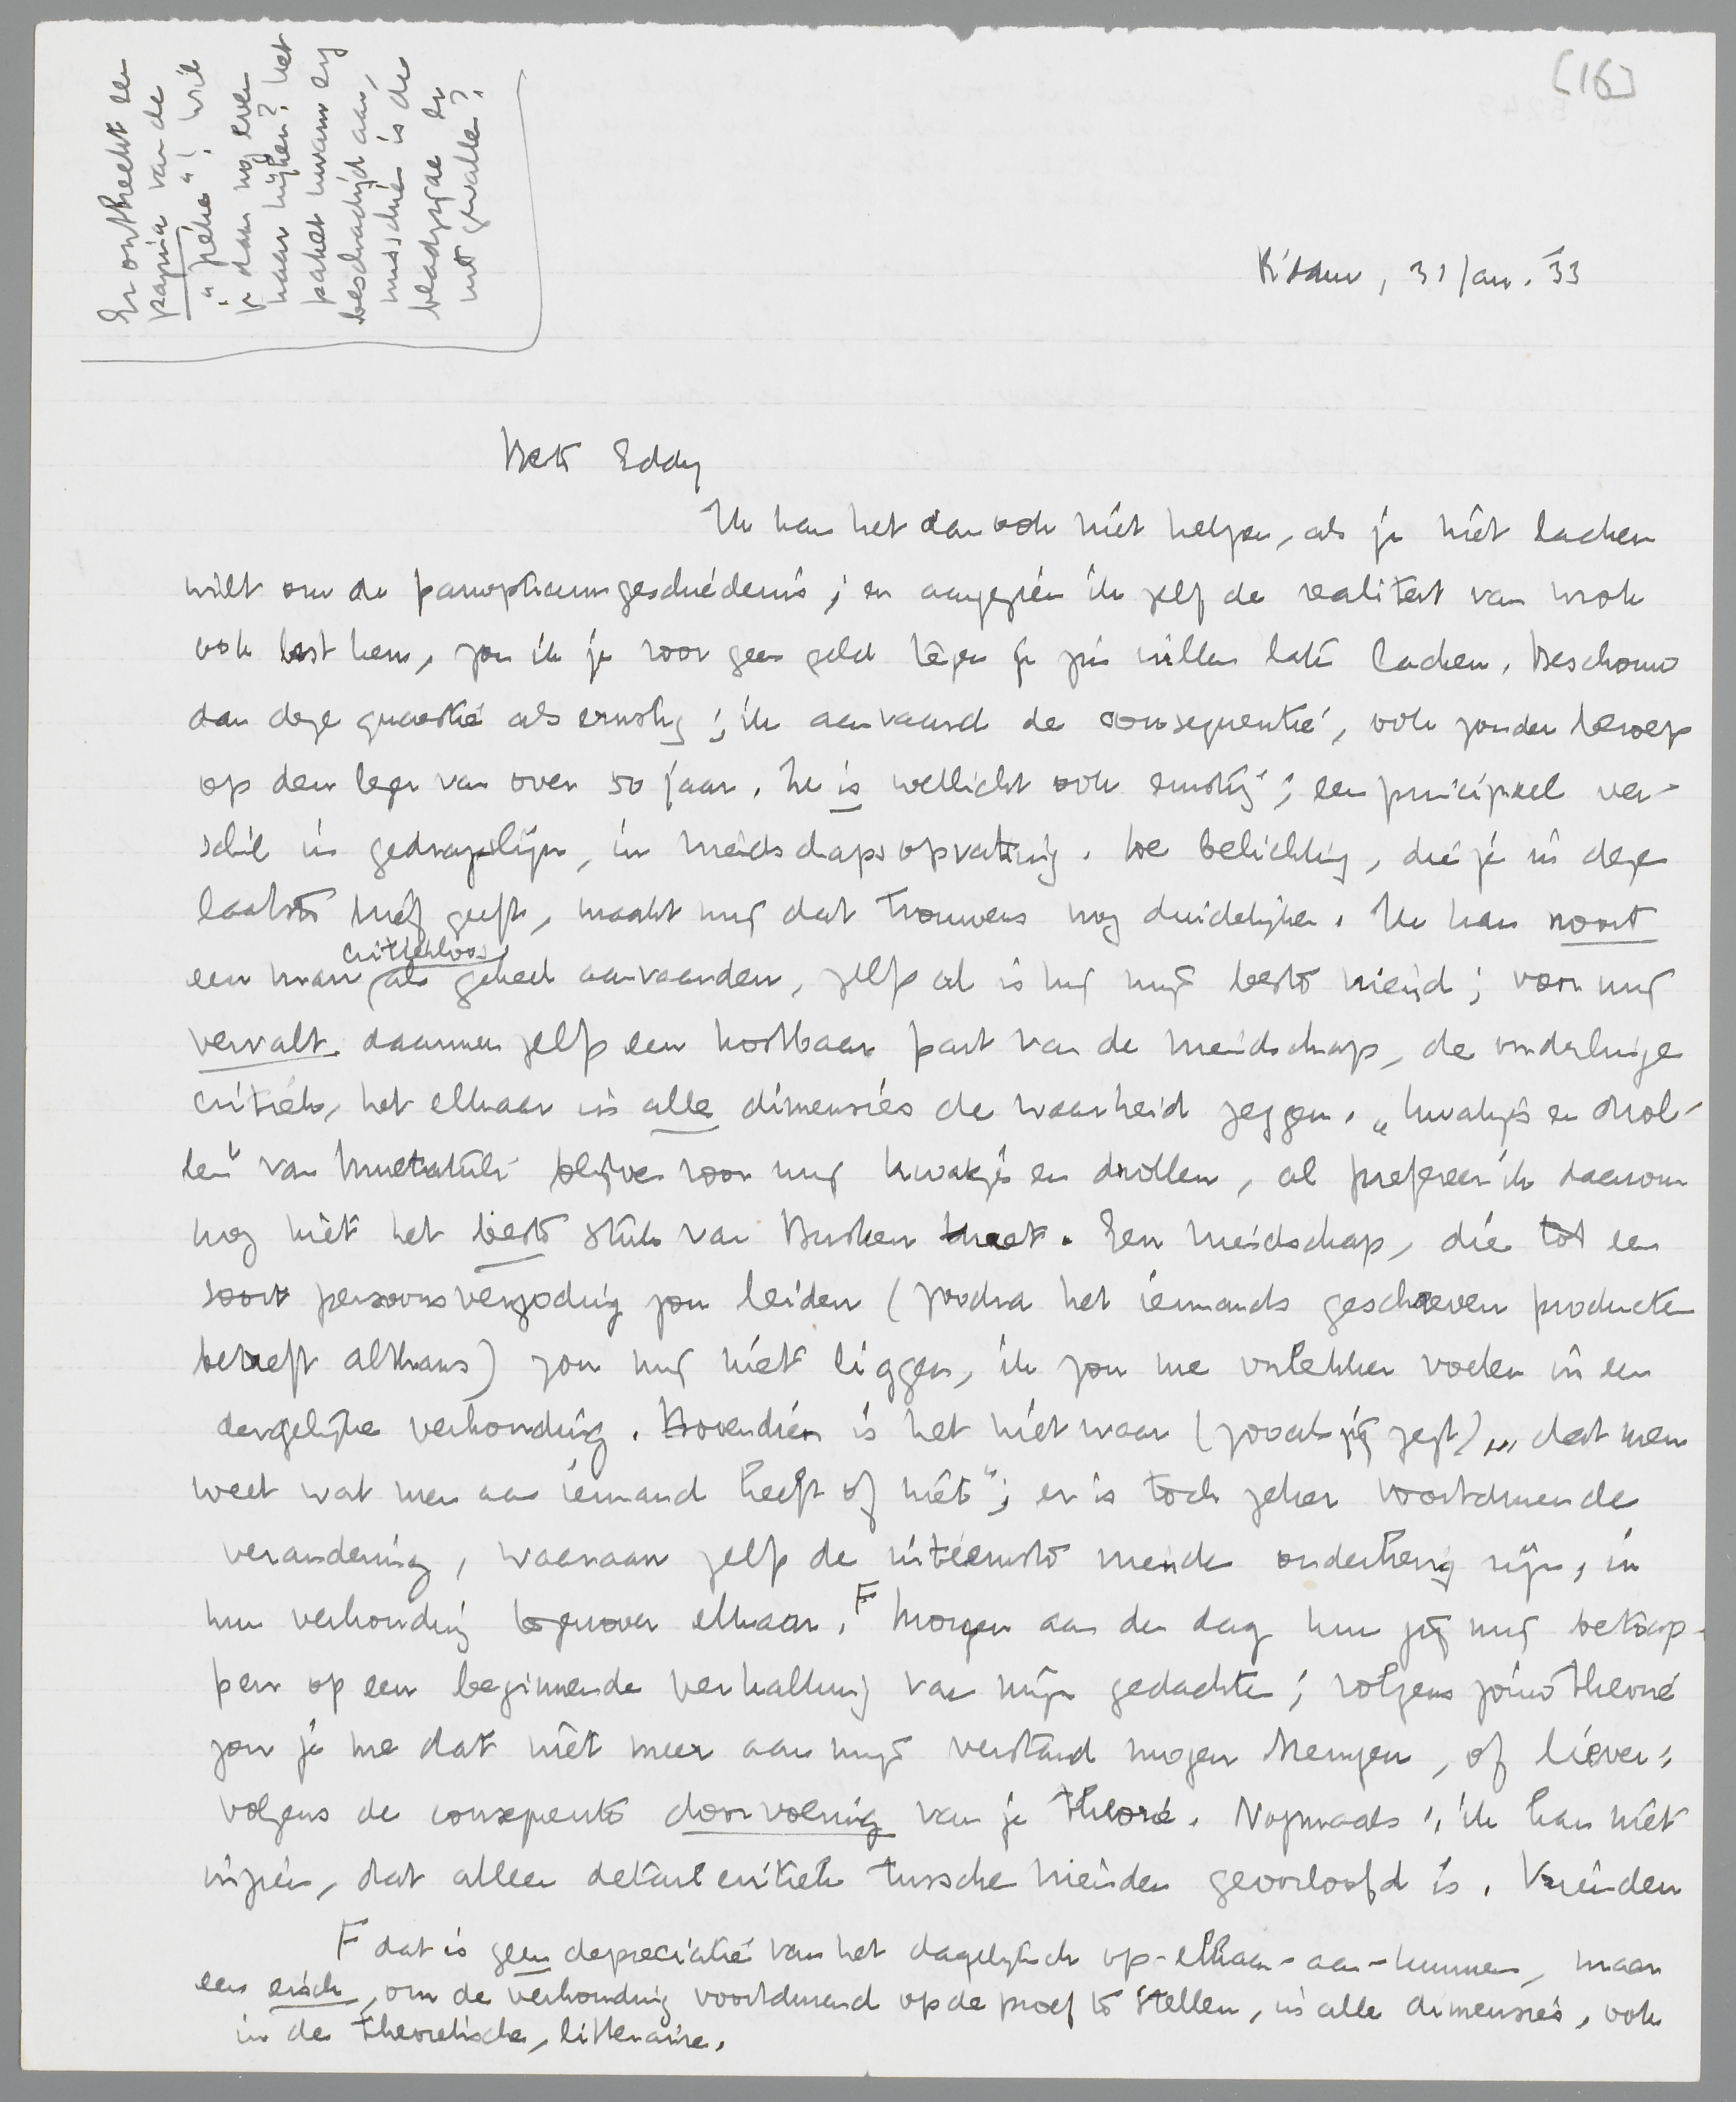 [16]
Er ontbreekt een
pagina van de
„péka"; wil
je daar nog even
naar kijken? Het
pakket kwam erg
beschadigd aan,
misschien is de
bladzijde er
uit gevallen?
R'dam, 31 Jan. '33
Beste Eddy
Ik kan het dan ook niet helpen, als je niet lachen
wilt om de panopticumgeschiedenis; en aangezien ik zelf de realiteit van wrok
ook best ken, zou ik je voor geen geld tegen je zin willen laten lachen. Beschouw
dan deze quaestie als ernstig; ik aanvaard de consequentie, ook zonder beroep
op den lezer van over 50 jaar. Ze is wellicht ook ernstig; een principieel ver-
schil in gedragslijn, in vriendschapsopvatting. De belichting, die je in deze
laatste brief geeft, maakt mij dat trouwens nog duidelijker. Ik kan nooit
een man critiekloos als geheel aanvaarden, zelfs al is hij mijn beste vriend; voor mij
vervalt daarmee zelfs een kostbaar part van de vriendschap, de onderlinge
critiek, het elkaar in alle dimensies de waarheid zeggen. „Kwakjes en drol-
len" van Multatuli blijven voor mij kwakjes en drollen, al prefereer ik daarom
nog niet het beste stuk van Busken Huet. Een vriendschap, die tot een
soort persoonsvergoding zou leiden (zoodra het iemands geschreven producten
betreft althans) zou mij niet liggen, ik zou me onlekker voelen in een
dergelijke verhouding. Bovendien is het niet waar (zooals jij zegt) „dat men
weet wat men aan iemand heeft of niet"; er is toch zeker voortdurende
verandering, waaraan zelfs de intiemste vrienden onderhevig zijn, in
hun verhouding tegenover elkaar. F Morgen aan den dag kun jij mij betrap-
pen op een beginnende verkalking van mijn gedachten; volgens jouw theorie
zou je me dat niet meer aan mijn verstand mogen brengen, of liever:
volgens de consequente doorvoering van je theorie. Nogmaals: ik kan niet
inzien, dat alleen detailcritiek tusschen vrienden geoorloofd is. Vrienden
F dat is geen depreciatie van het dagelijksch op-elkaar-aan-kunnen, maar
een eisch, om de verhouding voortdurend op de proef te stellen, in alle dimensies, ook
in de theoretische, litteraire.